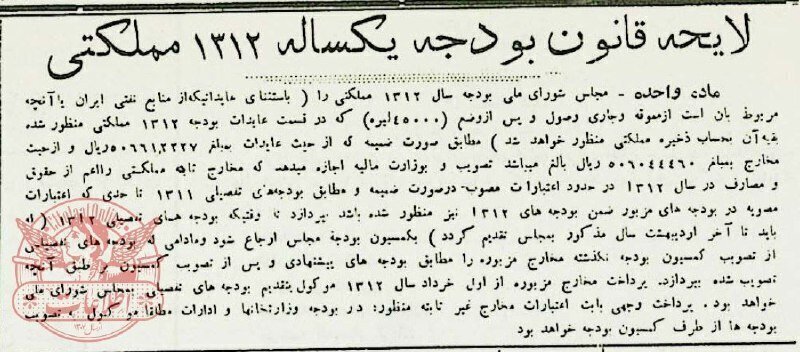 لایحه قانون بودجه یکساله ۱۳۱۲ مملکتی
ماده واحده - مجلس شورای ملی بودجه سال ۱۳۱۲ مملکتی را ( باستثنای عایداتیکه از منابع نفتی ایران یا آنچه
مربوط بان است ازمعوقه وجاری وصول و پس ازوضع (۴۵۰۰۰لیره) که در قسمت عایدات بودجه ۱۳۱۲ مملکتی منظور شده
بقیه آن بحساب ذخیره مملکتی منظور خواهد شد ) مطابق صورت ضمیمه که از حیث عایدات بمبلغ ۵۰۶۶۱۲۲۲۷ریال و ازحیث
مخارج بمبلغ ۵۰۶۰۴۴۴۶۰ ریال بالغ میباشد تصویب و بوزارت مالیه اجازه میدهد که مخارج ثابته مملکتی رااعم از حقوق
و مصارف در سال ۱۳۱۲ در حدود اعتبارات مصوب درصورت ضمیمه و مطابق بودجه‌های تفصیلی ۱۳۱۱ تا حدی که اعتبارات
مصوبه در بودجه های مزبور ضمن بودجه های ۱۳۱۲ نیز منظور شده باشد بپردازد تا وقتیکه بودجه های تفصیلی ۱۳۱۲ ( که
باید تا آخر اردیبهشت سال مذکور بمجلس تقدیم گردد ) بکمسیون بودجه مجلس ارجاع شود ومادامی که بودجه های تفصیلی
از تصویب کمسیون بودجه نگذشته مخارج مزبوره را مطابق بودجه های پیشنهادی و پس از تصویب کمسیون بر طبق آنچه
تصویب شده بپردازد. پرداخت مخارج مزبوره از اول خرداد سال ۱۳۱۲ موکول بتقدیم بودجه های تفصیلی بمجلس شورای ملی
خواهد بود . پرداخت وجهی بابت اعتبارات مخارج غیر ثابته منظور: در بودجه وزارتخانها و ادارات مطلقا موکول به تصویب
بودجه ها از طرف کمسیون بودجه خواهد بود